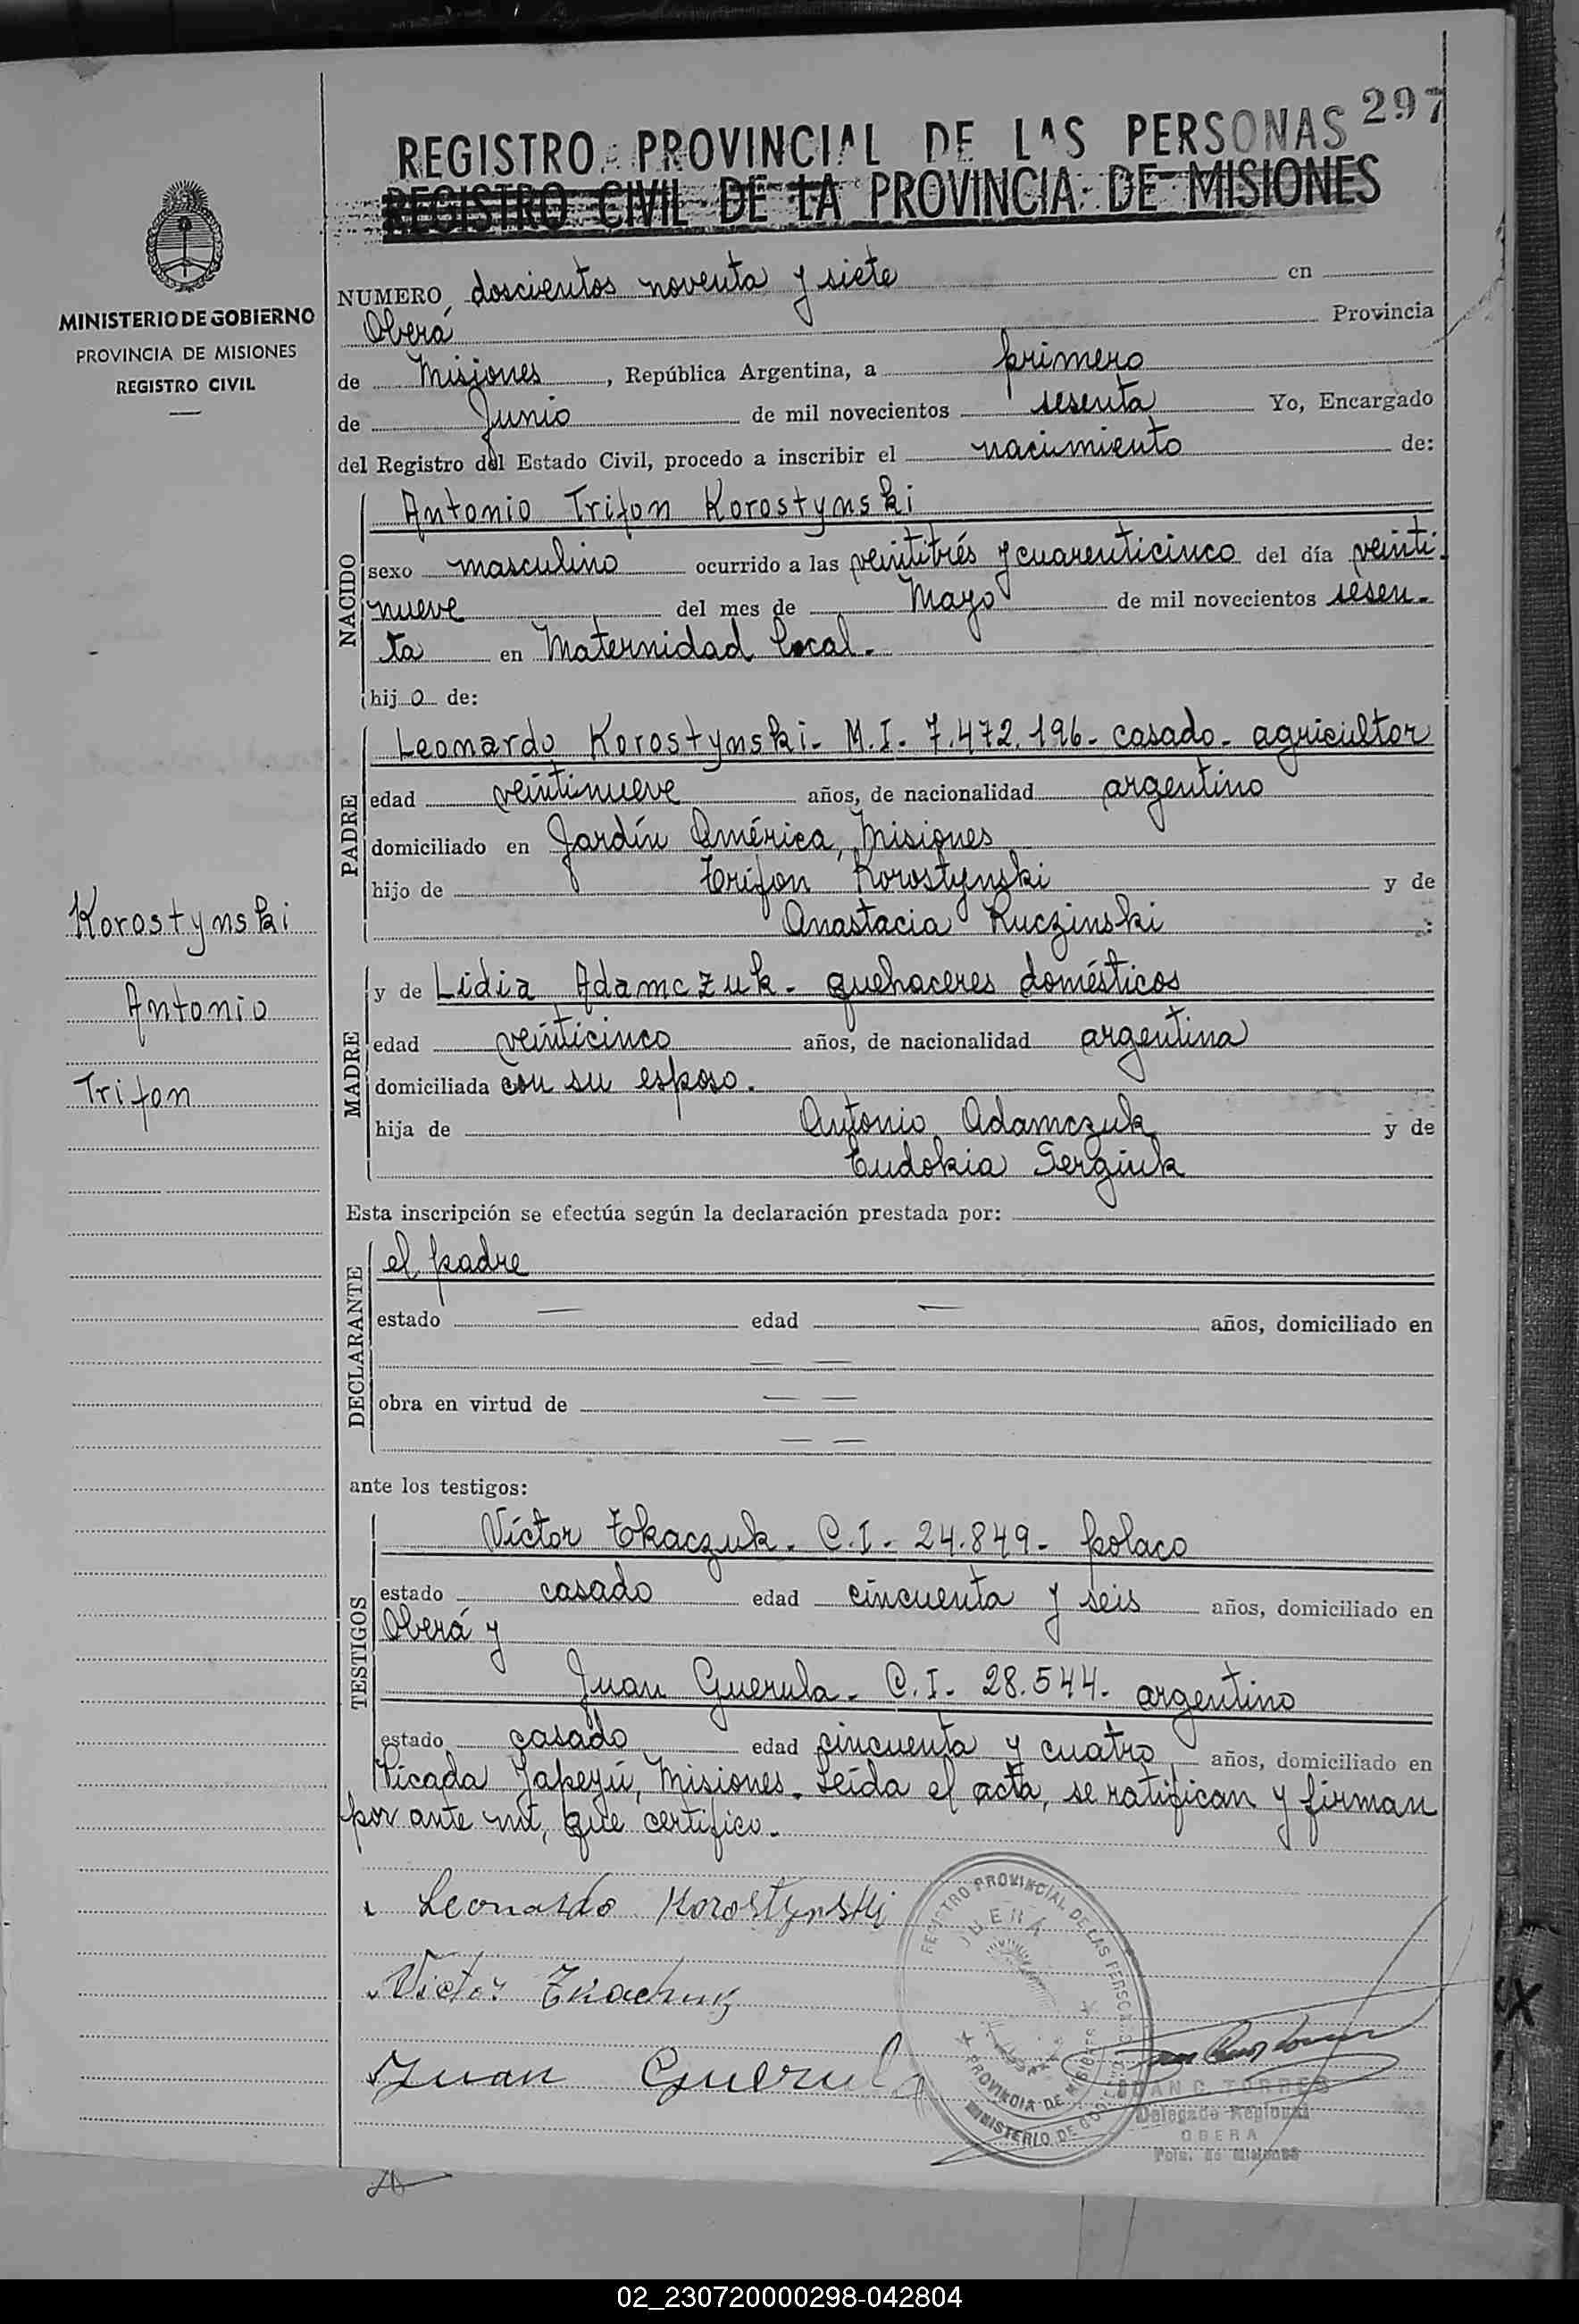 297
REGISTRO PROVINCIAL DE LAS PERSONAS
REGISTRO CIVIL DE LA PROVINCIA DE MISIONES
MINISTERIO DE GOBIERNO
PROVINCIA DE MISIONES
REGISTRO CIVIL
NUMERO doscientos noventa y siete en
Oberá Provincia
de Misiones, República Argentina, a primero
de Junio de mil novecientos sesenta Yo, Encargado
del Registro del Estado Civil, procedo a inscribir el nacimiento de:
NACIDO
Antonio Trifon Korostynski
sexo masculino ocurrido a las veintitrés y cuarenticinco del día veinti-
nueve del mes de Mayo de mil novecientos sesen-
ta en Maternidad local.
hijo de:
PADRE
Leonardo Korostynski - M.I. 7.472.196 - casado - agricultor
edad veintinueve años, de nacionalidad argentino
domiciliado en Jardín América, Misiones
hijo de Trifon Korostynski y de
Anastacia Ruczinski :
Korostynski
Antonio
Trifon
MADRE
y de Lidia Adamczuk - quehaceres domésticos
edad veinticinco años, de nacionalidad argentina
domiciliada con su esposo.
hija de Antonio Adamczuk y de
Eudokia Sergiuk
Esta inscripción se efectúa según la declaración prestada por:
DECLARANTE
el padre
estado — edad — años, domiciliado en
— —
obra en virtud de — —
— —
ante los testigos:
TESTIGOS
Víctor Tkaczuk - C.I. - 24.849 - polaco
estado casado edad cincuenta y seis años, domiciliado en
Oberá y
Juan Guerula - C.I. - 28.544 - argentino
estado casado edad cincuenta y cuatro años, domiciliado en
Picada Yapeyú, Misiones. Leída el acta, se ratifican y firman
por ante mí, que certifico.
Leonardo Korostynski
Victor Tkaczuk
Juan Guerula
REGISTRO PROVINCIAL DE LAS PERSONAS
OBERÁ
PROVINCIA DE MISIONES
MINISTERIO DE GOBIERNO
JUAN C. TORRES
Delegado Regional
OBERA
Pcia. de Misiones
02_230720000298-042804